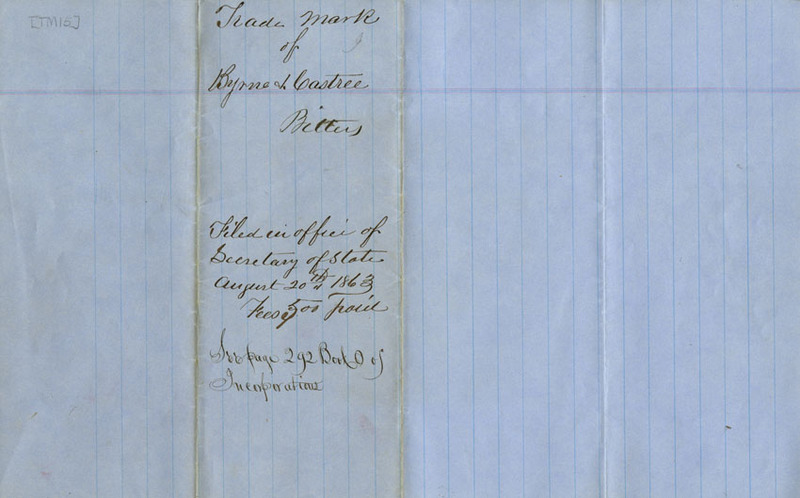 [TM15]
Trade Mark
of
Byrne & Castree
Bitters
Filed in office of
Secretary of State
August 20th 1863
Fees 5 00 paid
See page 292 Book O of
Incorporations